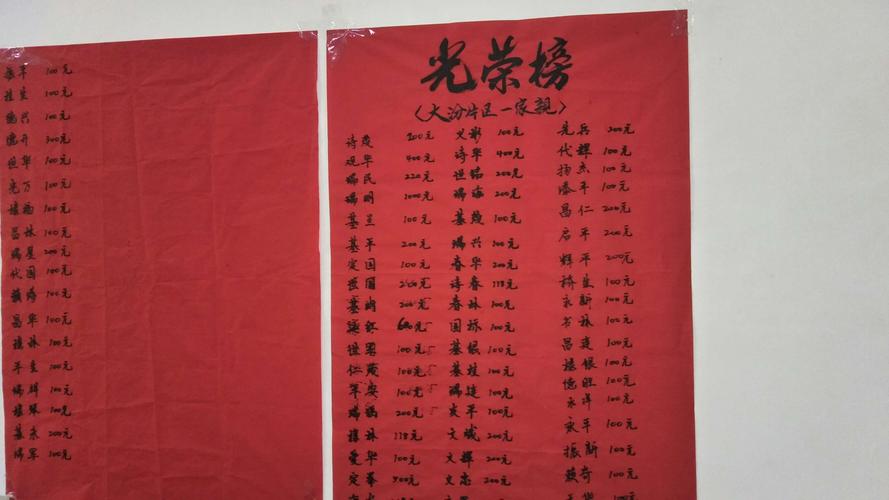 光荣榜
〈大汾片区一家親〉
100元
桂生 100元
德兴 100元
德升 300元
恒华 100元
光万 100元
100元
昌林 100元
瑞星 200元
代国 100元
100元
昌华 100元
桂林 100元
100元
瑞辉 100元
100元
基东 200元
瑞军 100元
诗茂 200元 文彬 100元 先兵 200元
观华 400元 诗华 400元 代辉 100元
瑞民 220元 世铭 200元 扬杰 100元
瑞明 1000元 瑞海 200元 泰平 100元
基兰 100元 基茂 100元 昌仁 200元
基平 200元 瑞兴 100元 启平 200元
定国 100元 春华 200元 辉平 200元
世国 200元 诗春 118元 100元
基明 200元 春林 100元 永新 100元
600元 国栋 100元 林 100元
世军 100元 基银 100元 昌建 100元
仁茂 100元 基桂 100元 银 100元
军安 100元 瑞廷 100元 德旺 100元
200元 炎平 100元 永洋 100元
林 118元 文斌 200元 永平 100元
爱华 100元 文辉 200元 振新 100元
定 300元 文志 200元 赖奇 100元